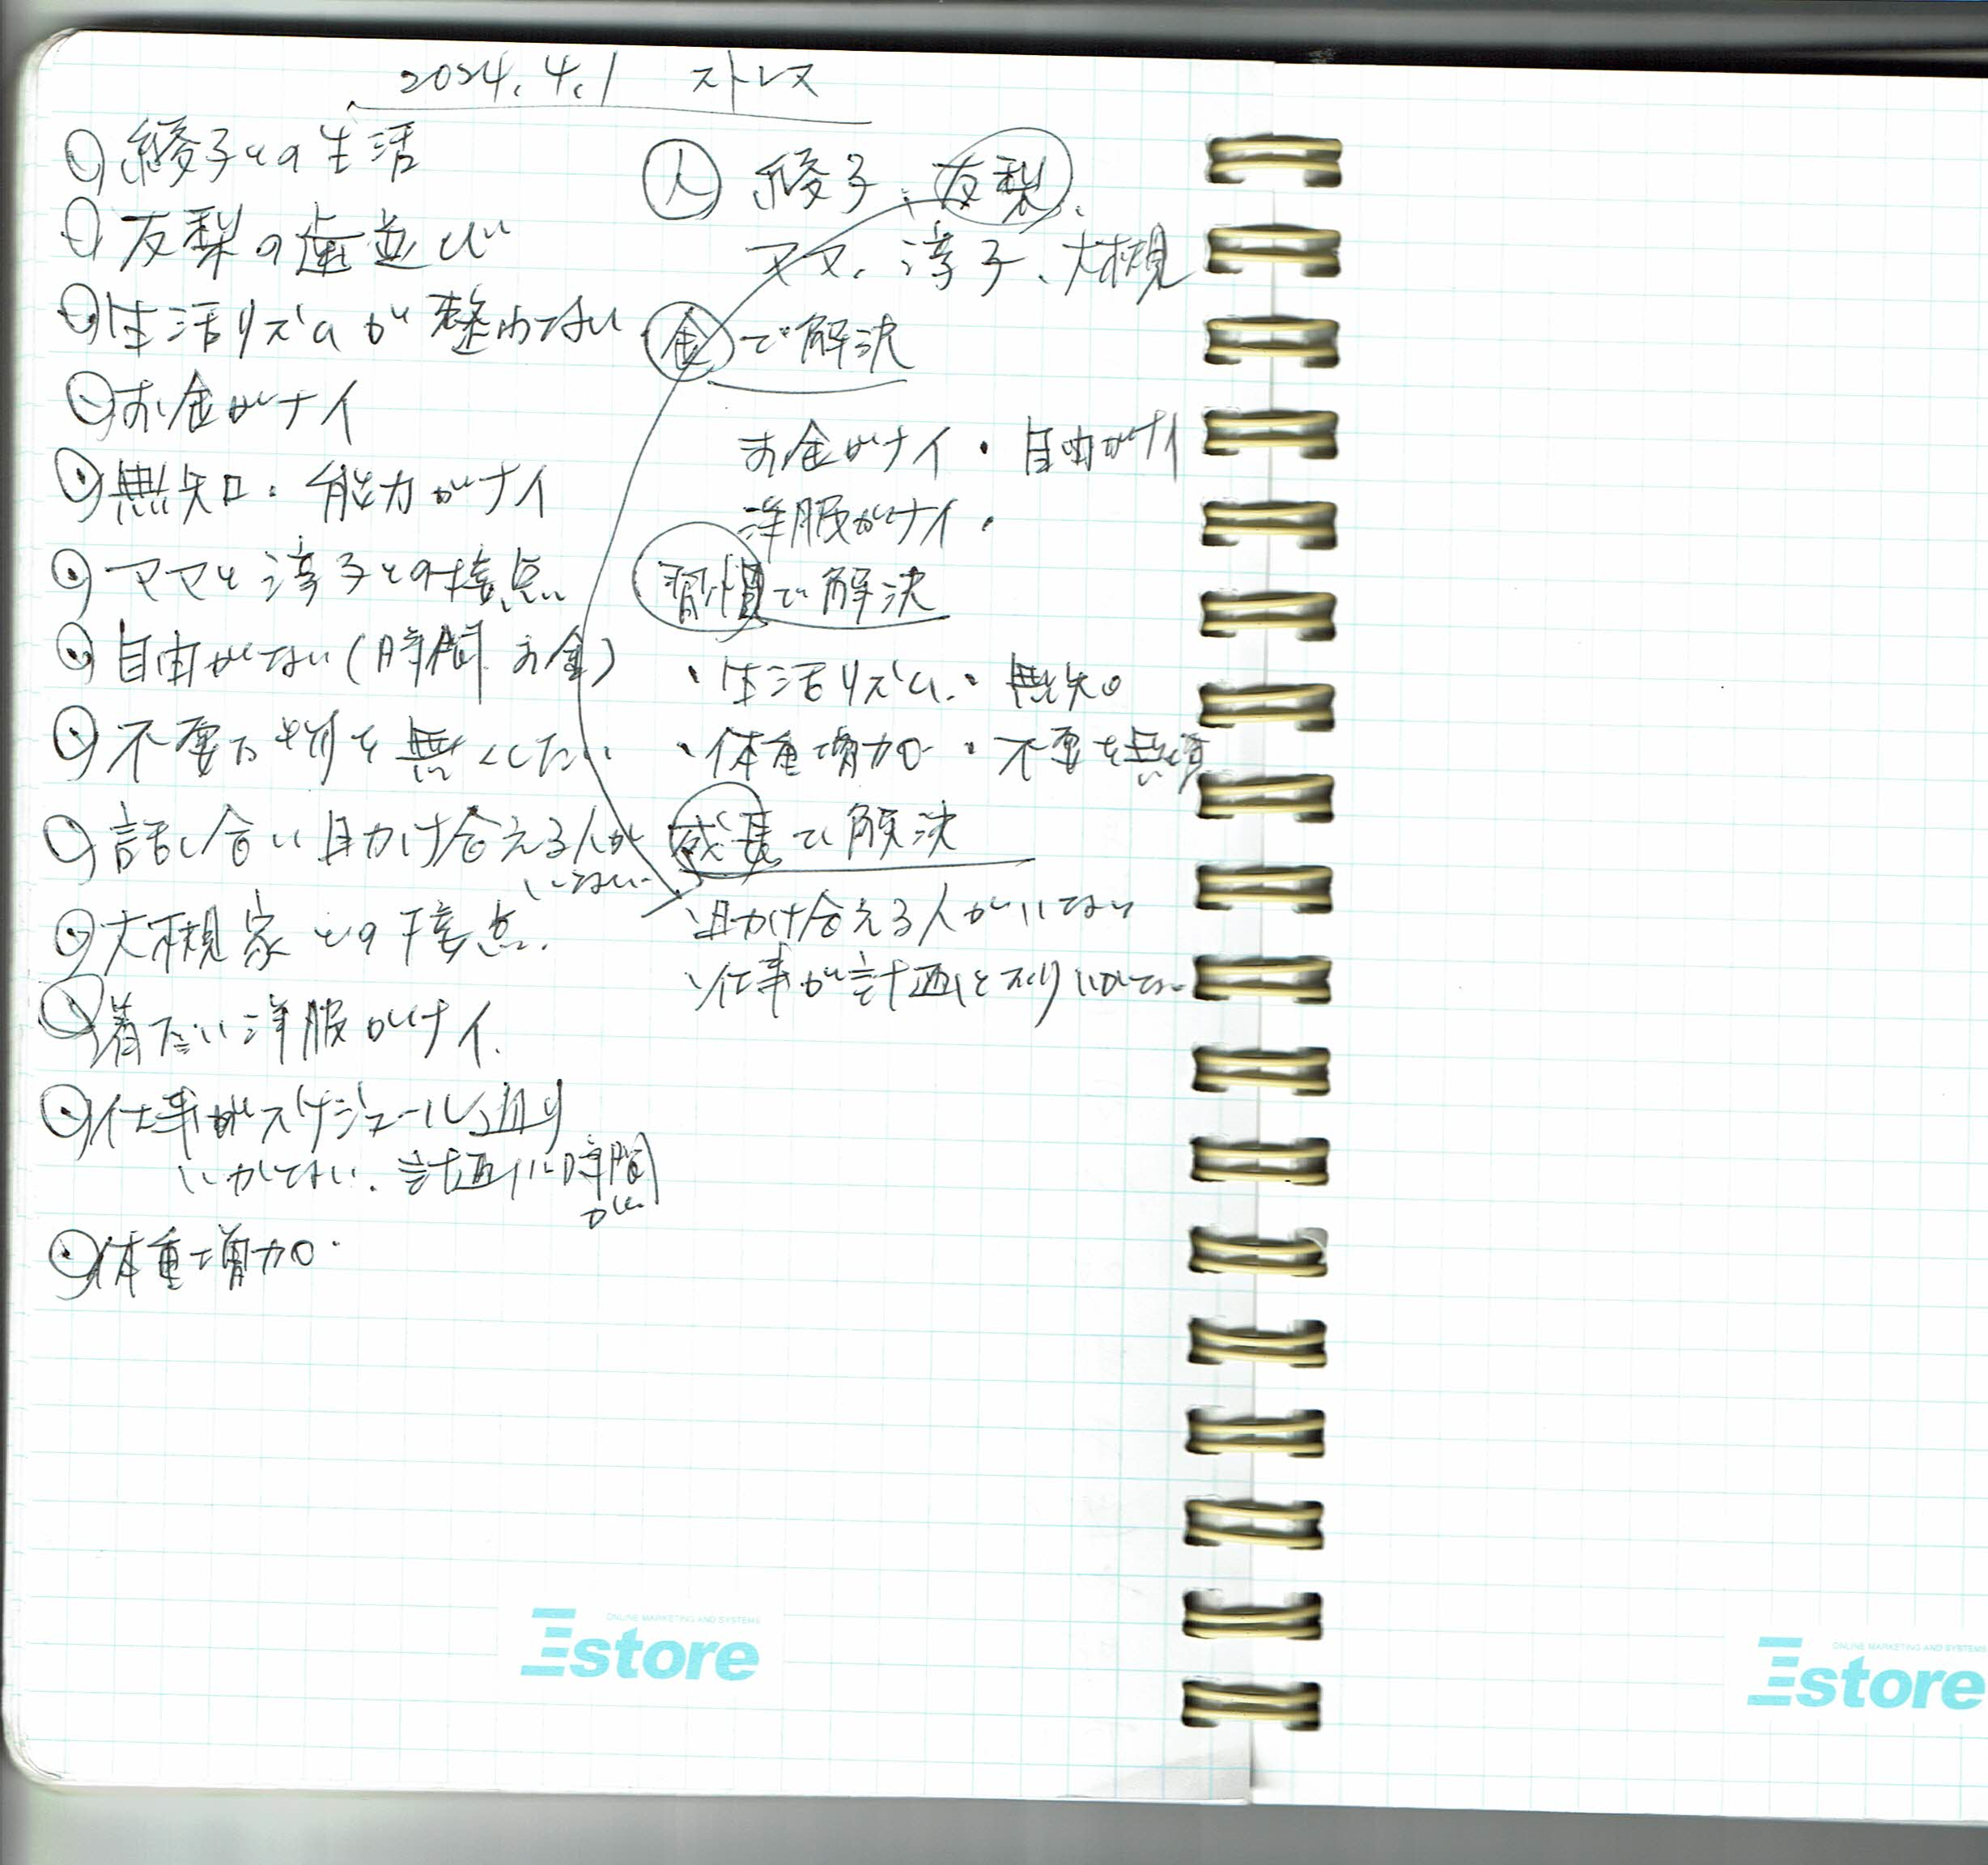 2024.4.1 ストレス
綾子との生活
友梨の歯並び
生活リズムが整わない
お金がナイ
無知・能力がナイ
ママと淳子との接点
自由がない(時間 お金)
不要な物を無くしたい
話し合い助け合える人が
いない
大槻家との接点.
着たい洋服がナイ.
仕事がスケジュール通り
いかない. 計画に時間
が
体重増加.
人 綾子、友梨、
ママ、淳子、大槻
金で解決
お金がナイ・自由がナイ
洋服がナイ・
習慣で解決
・生活リズム・無知
・体重増加・不要を無
成長で解決
・助け合える人がいない
・仕事が計画とおりいかない
ONLINE MARKETING AND SYSTEMS
Estore
ONLINE MARKETING AND SYSTEMS
Estore